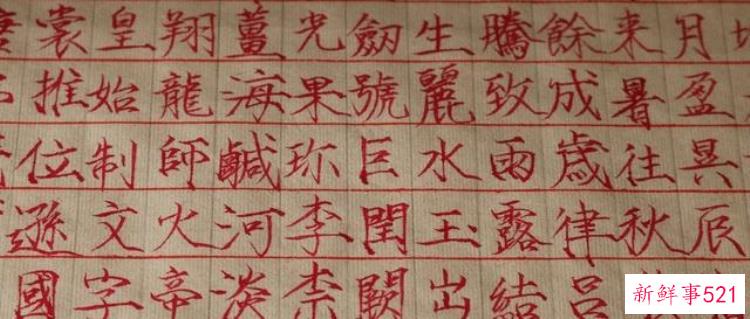 月盈昃辰
来暑往秋
餘成歳律呂
騰致雨露結
生麗水玉出
劒號巨閏闕
光果珎李柰
薑海鹹河淡
翔龍師火帝
皇始制文字
裳推位遜國
新鲜事521